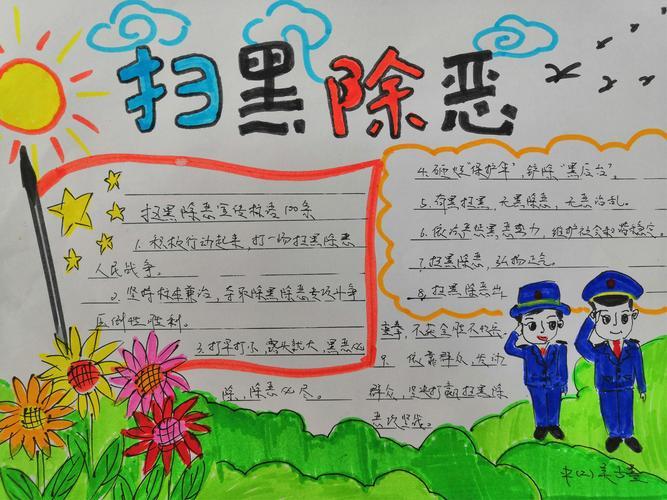 扫黑除恶
扫黑除恶宣传标语100条
1.积极行动起来,打一场扫黑除恶
人民战争。
2.坚持标本兼治,夺取除黑除恶专项斗争
压倒性胜利。
3.打早打小,露头就打,黑恶必
除,除恶必尽。
4.砸烂"保护伞",铲除"黑后台"。
5.有黑扫黑,无黑除恶,无恶治乱。
6.依法严惩黑恶势力,维护社会和谐稳定。
7.扫黑除恶,弘扬正气。
8.扫黑除恶出
重拳,不获全胜不收兵。
9.依靠群众,发动
群众,坚决打赢扫黑除
恶攻坚战。